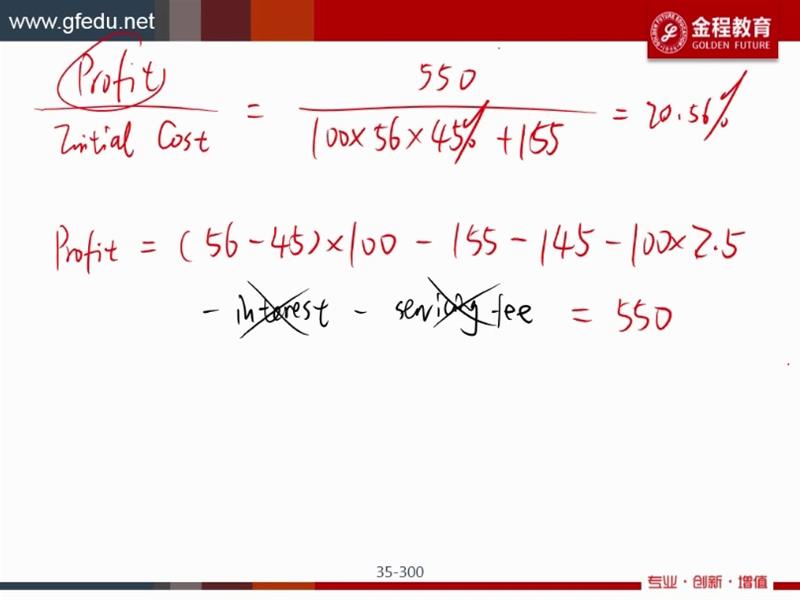 www.gfedu.net
金程教育
GOLDEN FUTURE
Profit / Initial Cost = 550 / (100×56×45% + 155) = 20.56%
Profit = (56-45)×100 - 155 - 145 - 100×2.5
- interest - servicing fee = 550
35-300
专业·创新·增值